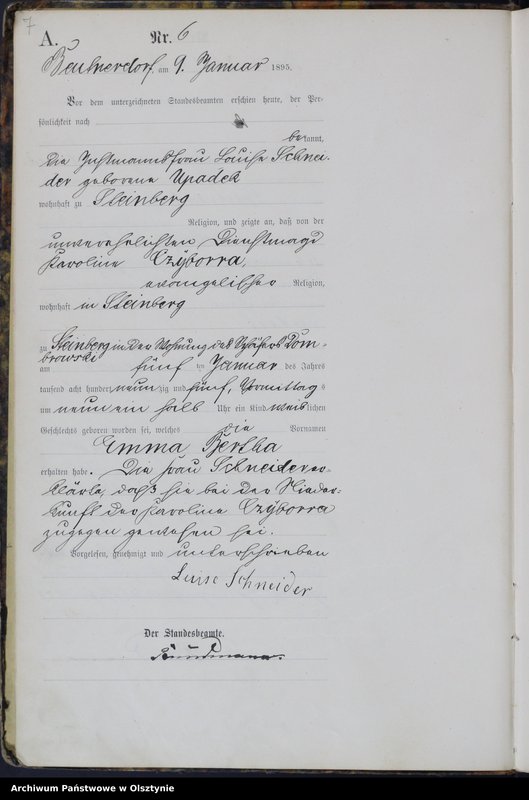 7
A.
Nr. 6
Beutnerdorf, am 9. Januar 1895.
Vor dem unterzeichneten Standesbeamten erschien heute, der Per-
sönlichkeit nach
bekannt,
die Instmannsfrau Louise Schnei-
der geborene Upadek
wohnhaft zu Steinberg
Religion, und zeigte an, daß von der
unverehelichten Dienstmagd
Karoline Czÿborra,
evangelischer Religion,
wohnhaft in Steinberg
zu Steinberg in der Wohnung des Dom-
browski
am fünf ten Januar des Jahres
tausend acht hundert neun zig und fünf, Vormittags
um neun ein halb Uhr ein Kind weiblichen
Geschlechts geboren worden sei, welches die Vornamen
Emma Bertha
erhalten habe. Die Frau Schneider er-
klärte, daß sie bei der Nieder-
kunft der Karoline Czÿborra
zugegen gewesen sei.
Vorgelesen, genehmigt und unterschrieben
Luise Schneider
Der Standesbeamte.
Archiwum Państwowe w Olsztynie